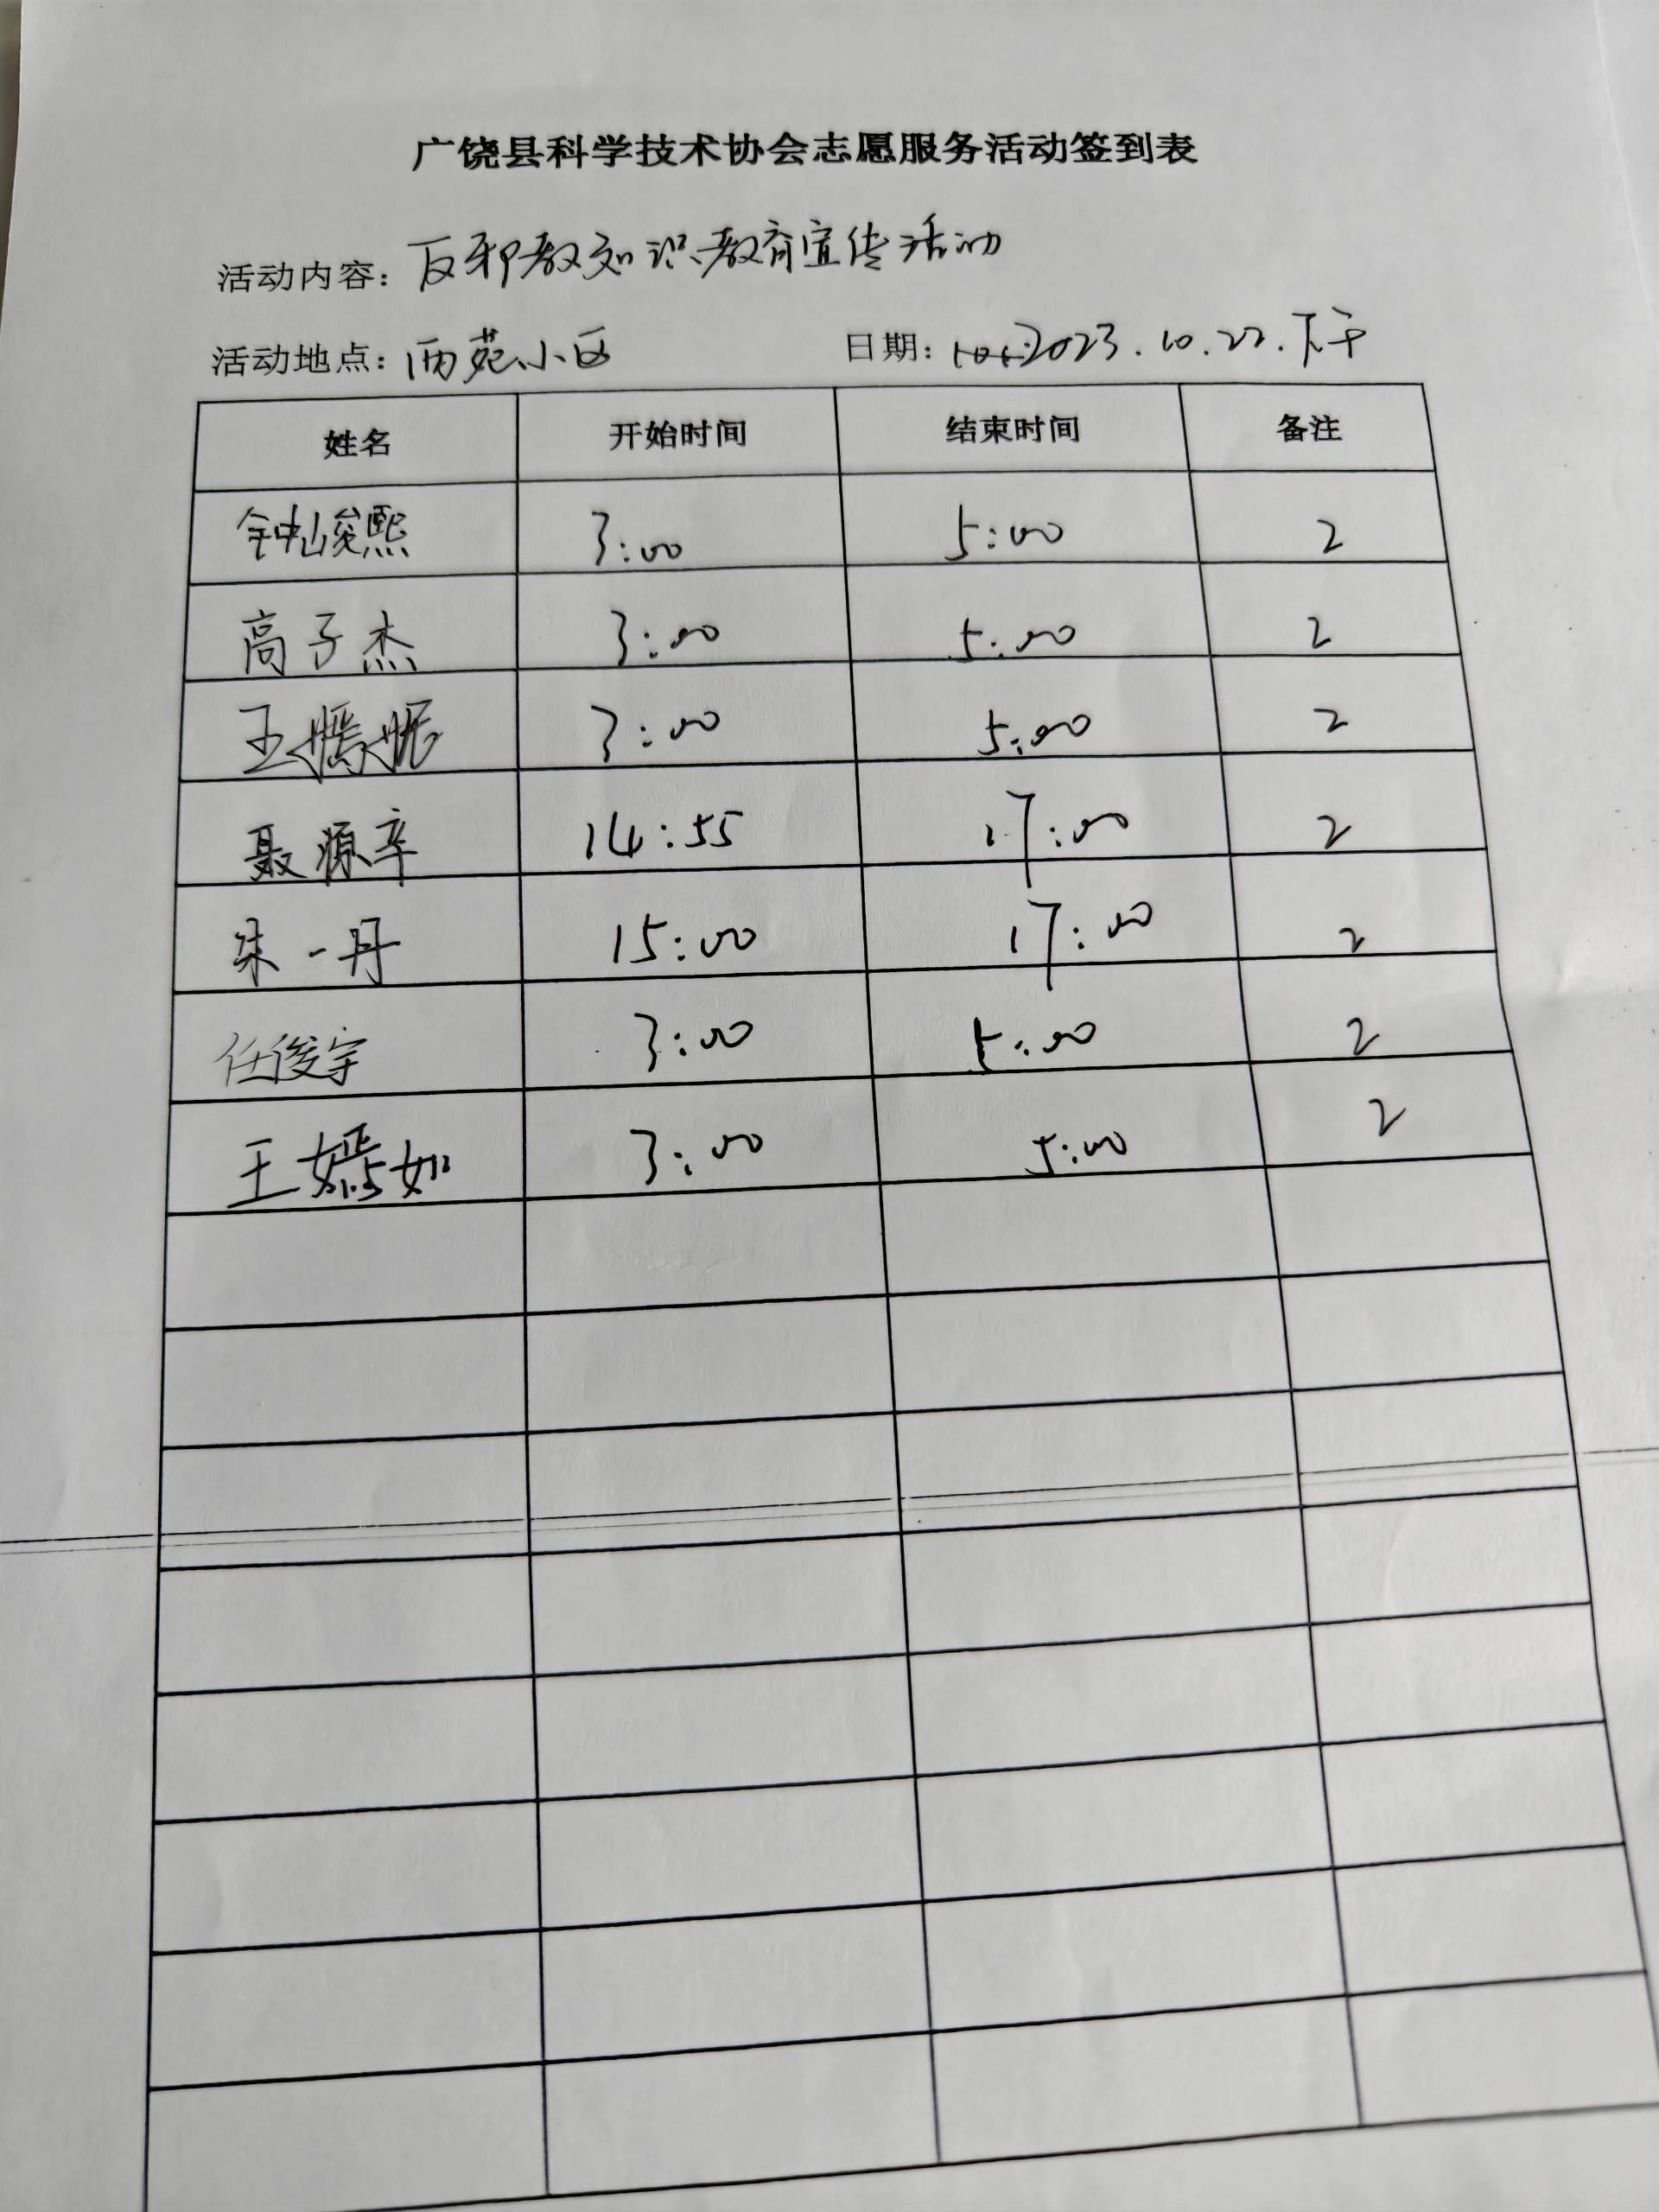 广饶县科学技术协会志愿服务活动签到表
活动内容：反邪教知识教育宣传活动
活动地点：西苑小区 日期：2023.10.22.下午
姓名 开始时间 结束时间 备注
钟峻熙 3:00 5:00 2
高子杰 3:00 5:00 2
王嫣妮 3:00 5:00 2
聂源辛 14:55 17:00 2
朱一丹 15:00 17:00 2
任俊宇 3:00 5:00 2
王嫣如 3:00 5:00 2